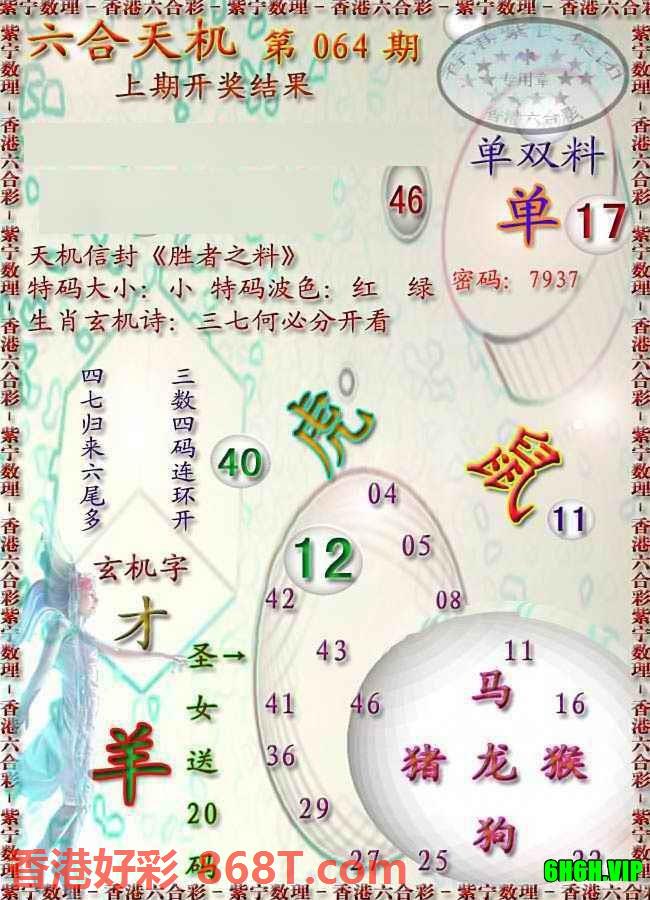 紫宁数理－香港六合彩－紫宁数理－香港六合彩－紫宁数理－香港六合彩
六合天机 第 064 期
上期开奖结果
专用章
香港六合彩
单双料
46
单 17
天机信封《胜者之料》
特码大小：小 特码波色：红 绿
密码：7937
生肖玄机诗：三七何必分开看
四七归来六尾多
三数四码连环开
40
虎
鼠
11
04
05
12
42
08
玄机字
才
圣女送20码
→
43
11
马
41
46
16
羊
36
猪 龙 猴
29
狗
27
25
香港好彩 868T.com
6H6H.VIP
紫宁数理－香港六合彩－紫宁数理－香港六合彩－紫宁数理－香港六合彩